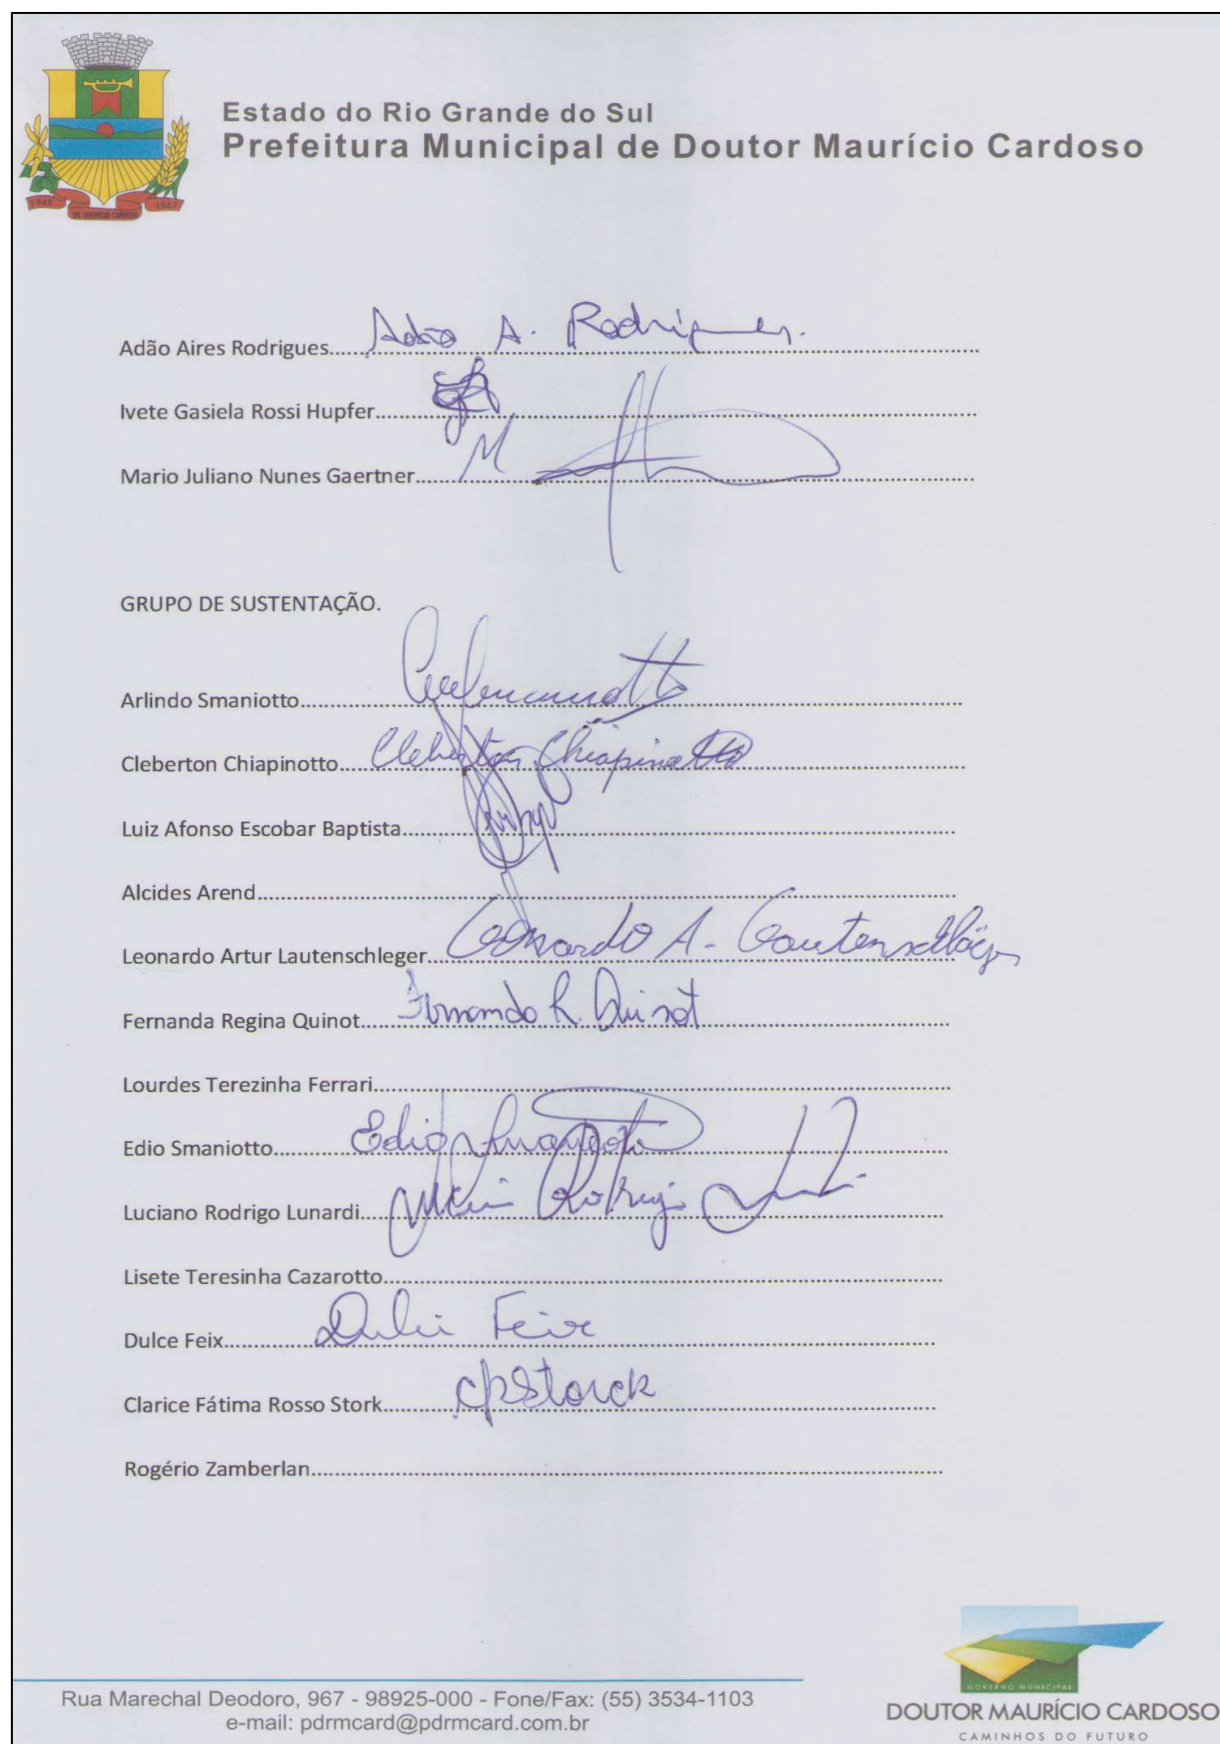 Estado do Rio Grande do Sul
Prefeitura Municipal de Doutor Maurício Cardoso
1987
Adão Aires Rodrigues.......... Adão A. Rodrigues.
Ivete Gasiela Rossi Hupfer..........
Mario Juliano Nunes Gaertner.......... M
GRUPO DE SUSTENTAÇÃO.
Arlindo Smaniotto..........
Cleberton Chiapinotto.......... Cleberton Chiapinotto
Luiz Afonso Escobar Baptista..........
Alcides Arend..........
Leonardo Artur Lautenschleger.......... Leonardo A. Lautenschläger
Fernanda Regina Quinot.......... Fernanda R. Quinot
Lourdes Terezinha Ferrari..........
Edio Smaniotto.......... Edio Smaniotto
Luciano Rodrigo Lunardi.......... Rodrigo
Lisete Teresinha Cazarotto..........
Dulce Feix.......... Dulce Feix
Clarice Fátima Rosso Stork.......... Storck
Rogério Zamberlan..........
GOVERNO MUNICIPAL
Rua Marechal Deodoro, 967 - 98925-000 - Fone/Fax: (55) 3534-1103
e-mail: pdrmcard@pdrmcard.com.br
DOUTOR MAURÍCIO CARDOSO
CAMINHOS DO FUTURO